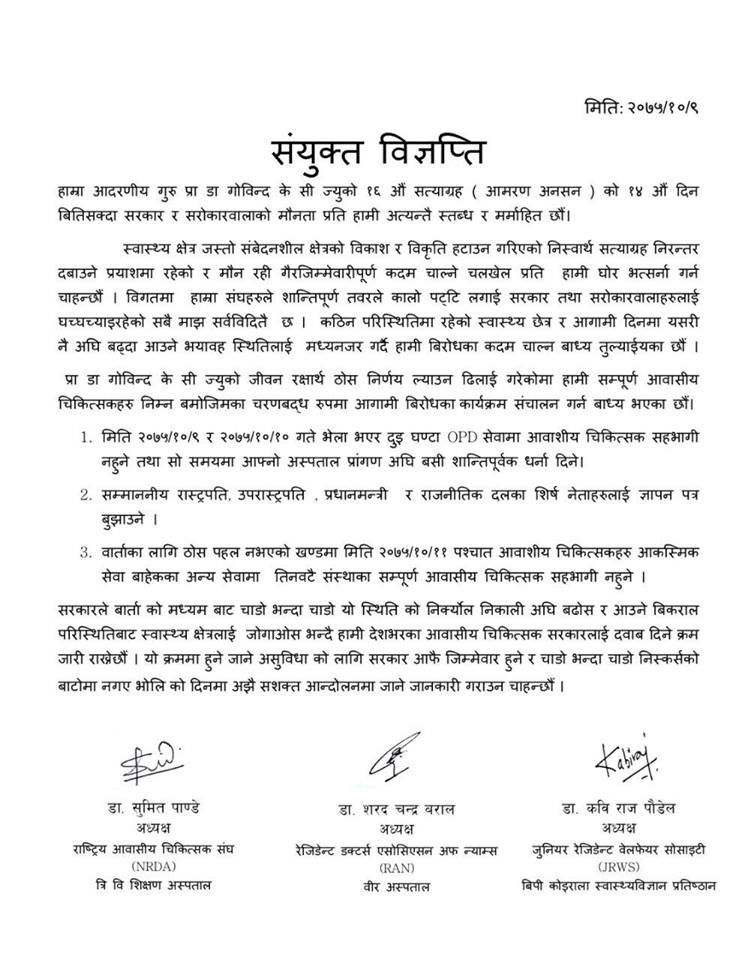 मिति: २०७५/१०/९
संयुक्त विज्ञप्ति
हाम्रा आदरणीय गुरु प्रा डा गोविन्द के सी ज्युको १६ औं सत्याग्रह ( आमरण अनसन ) को १४ औं दिन
बितिसक्दा सरकार र सरोकारवालाको मौनता प्रति हामी अत्यन्तै स्तब्ध र मर्माहित छौं।
स्वास्थ्य क्षेत्र जस्तो संबेदनशील क्षेत्रको विकाश र विकृति हटाउन गरिएको निस्वार्थ सत्याग्रह निरन्तर
दबाउने प्रयाशमा रहेको र मौन रही गैरजिम्मेवारीपूर्ण कदम चाल्ने चलखेल प्रति हामी घोर भत्सर्ना गर्न
चाहन्छौं । विगतमा हाम्रा संघहरुले शान्तिपूर्ण तवरले कालो पट्टि लगाई सरकार तथा सरोकारवालाहरुलाई
घच्घच्याइरहेको सबै माझ सर्वविदितै छ । कठिन परिस्थितिमा रहेको स्वास्थ्य छेत्र र आगामी दिनमा यसरी
नै अघि बढ्दा आउने भयावह स्थितिलाई मध्यनजर गर्दै हामी बिरोधका कदम चाल्न बाध्य तुल्याईयका छौं ।
प्रा डा गोविन्द के सी ज्युको जीवन रक्षार्थ ठोस निर्णय ल्याउन ढिलाई गरेकोमा हामी सम्पूर्ण आवासीय
चिकित्सकहरु निम्न बमोजिमका चरणबद्ध रुपमा आगामी बिरोधका कार्यक्रम संचालन गर्न बाध्य भएका छौं।
1. मिति २०७५/१०/९ र २०७५/१०/१० गते भेला भएर दुइ घण्टा OPD सेवामा आवाशीय चिकित्सक सहभागी
नहुने तथा सो समयमा आफ्नो अस्पताल प्रांगण अघि बसी शान्तिपूर्वक धर्ना दिने।
2. सम्माननीय रास्ट्रपति, उपरास्ट्रपति , प्रधानमन्त्री र राजनीतिक दलका शिर्ष नेताहरुलाई ज्ञापन पत्र
बुझाउने ।
3. वार्ताका लागि ठोस पहल नभएको खण्डमा मिति २०७५/१०/११ पश्चात आवाशीय चिकित्सकहरु आकस्मिक
सेवा बाहेकका अन्य सेवामा तिनवटै संस्थाका सम्पूर्ण आवासीय चिकित्सक सहभागी नहुने ।
सरकारले बार्ता को मध्यम बाट चाडो भन्दा चाडो यो स्थिति को निर्क्यौल निकाली अघि बढोस र आउने बिकराल
परिस्थितिबाट स्वास्थ्य क्षेत्रलाई जोगाओस भन्दै हामी देशभरका आवासीय चिकित्सक सरकारलाई दवाब दिने क्रम
जारी राख्नेछौं । यो क्रममा हुने जाने असुविधा को लागि सरकार आफै जिम्मेवार हुने र चाडो भन्दा चाडो निस्कर्सको
बाटोमा नगए भोलि को दिनमा अझै सशक्त आन्दोलनमा जाने जानकारी गराउन चाहन्छौं ।
Kabiraj
डा. सुमित पाण्डे डा. शरद चन्द्र बराल डा. कवि राज पौडेल
अध्यक्ष अध्यक्ष अध्यक्ष
राष्ट्रिय आवासीय चिकित्सक संघ रेजिडेन्ट डक्टर्स एसोसिएसन अफ न्याम्स जुनियर रेजिडेन्ट वेलफेयर सोसाइटी
(NRDA) (RAN) (JRWS)
त्रि वि शिक्षण अस्पताल वीर अस्पताल बिपी कोइराला स्वास्थ्यविज्ञान प्रतिष्ठान